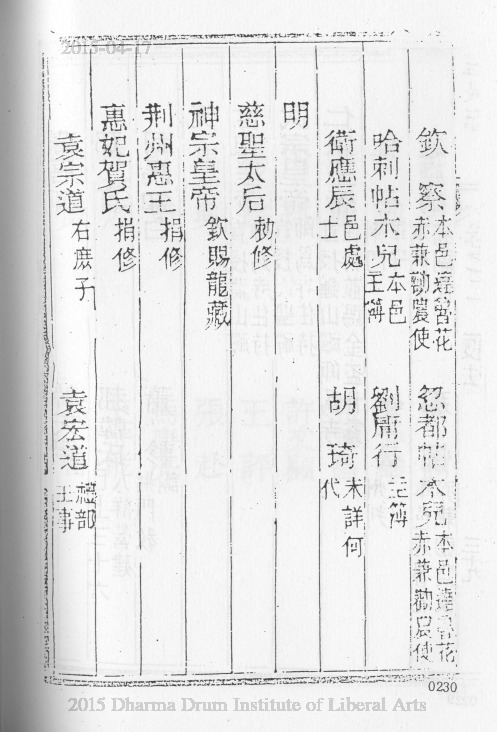 2015-04-17
欽察 本邑達魯花赤兼勸農使 忽都帖木兒 本邑達魯花赤兼勸農使
哈剌帖木兒 本邑主簿 劉庸行 主簿
衛應辰 邑處士 胡琦 未詳何代
明
慈聖太后 勅修
神宗皇帝 欽賜龍藏
荆州惠王 捐修
惠妃賀氏 捐修
袁宗道 右庶子 袁宏道 禮部主事
0230
2015 Dharma Drum Institute of Liberal Arts